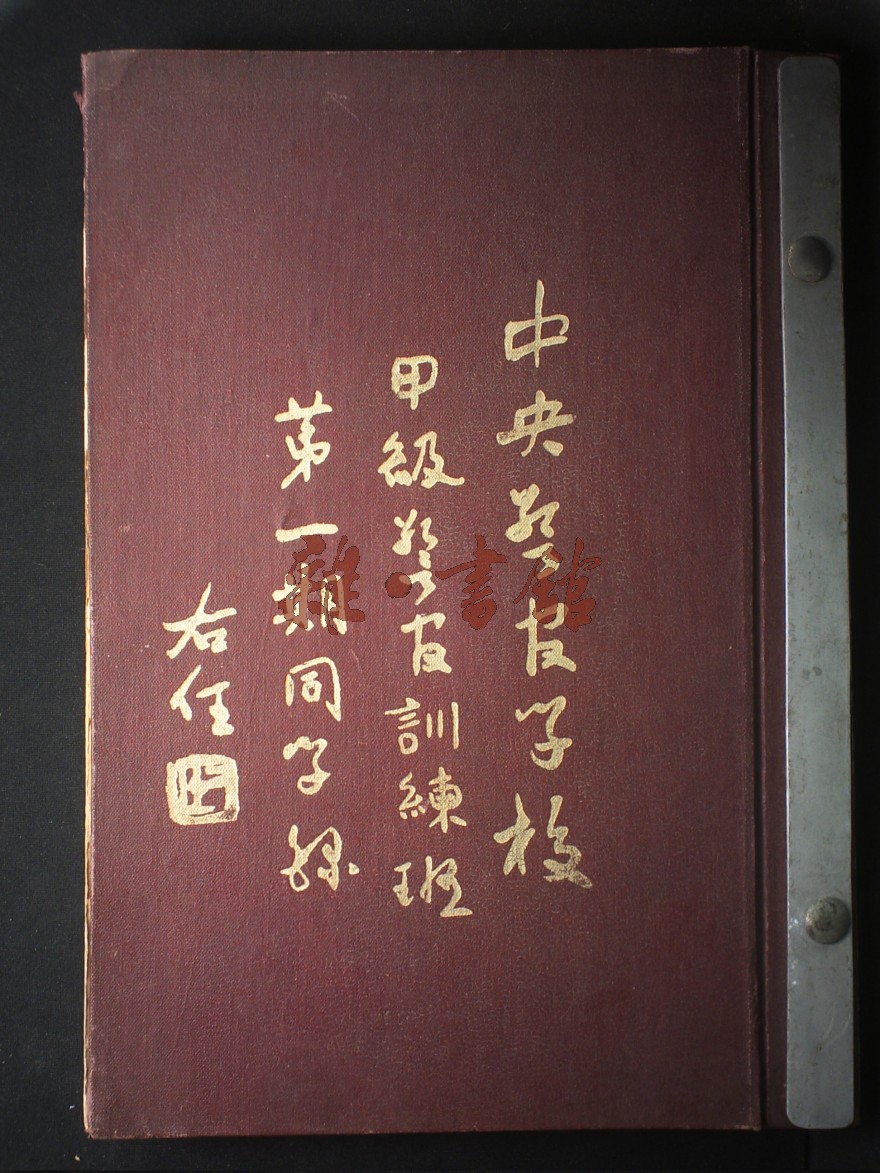 中央警官学校
甲級警官訓練班
第一期同学録
右任
雜·書館